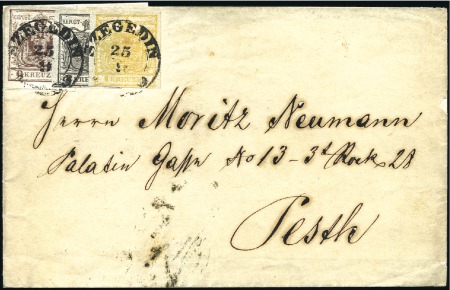 SZEGEDIN
25
9
SZEGEDIN
25
9
KREUZ
Herrn Moritz Neumann
Palatin Gasse No 13 - 3t Stock 28
Pesth